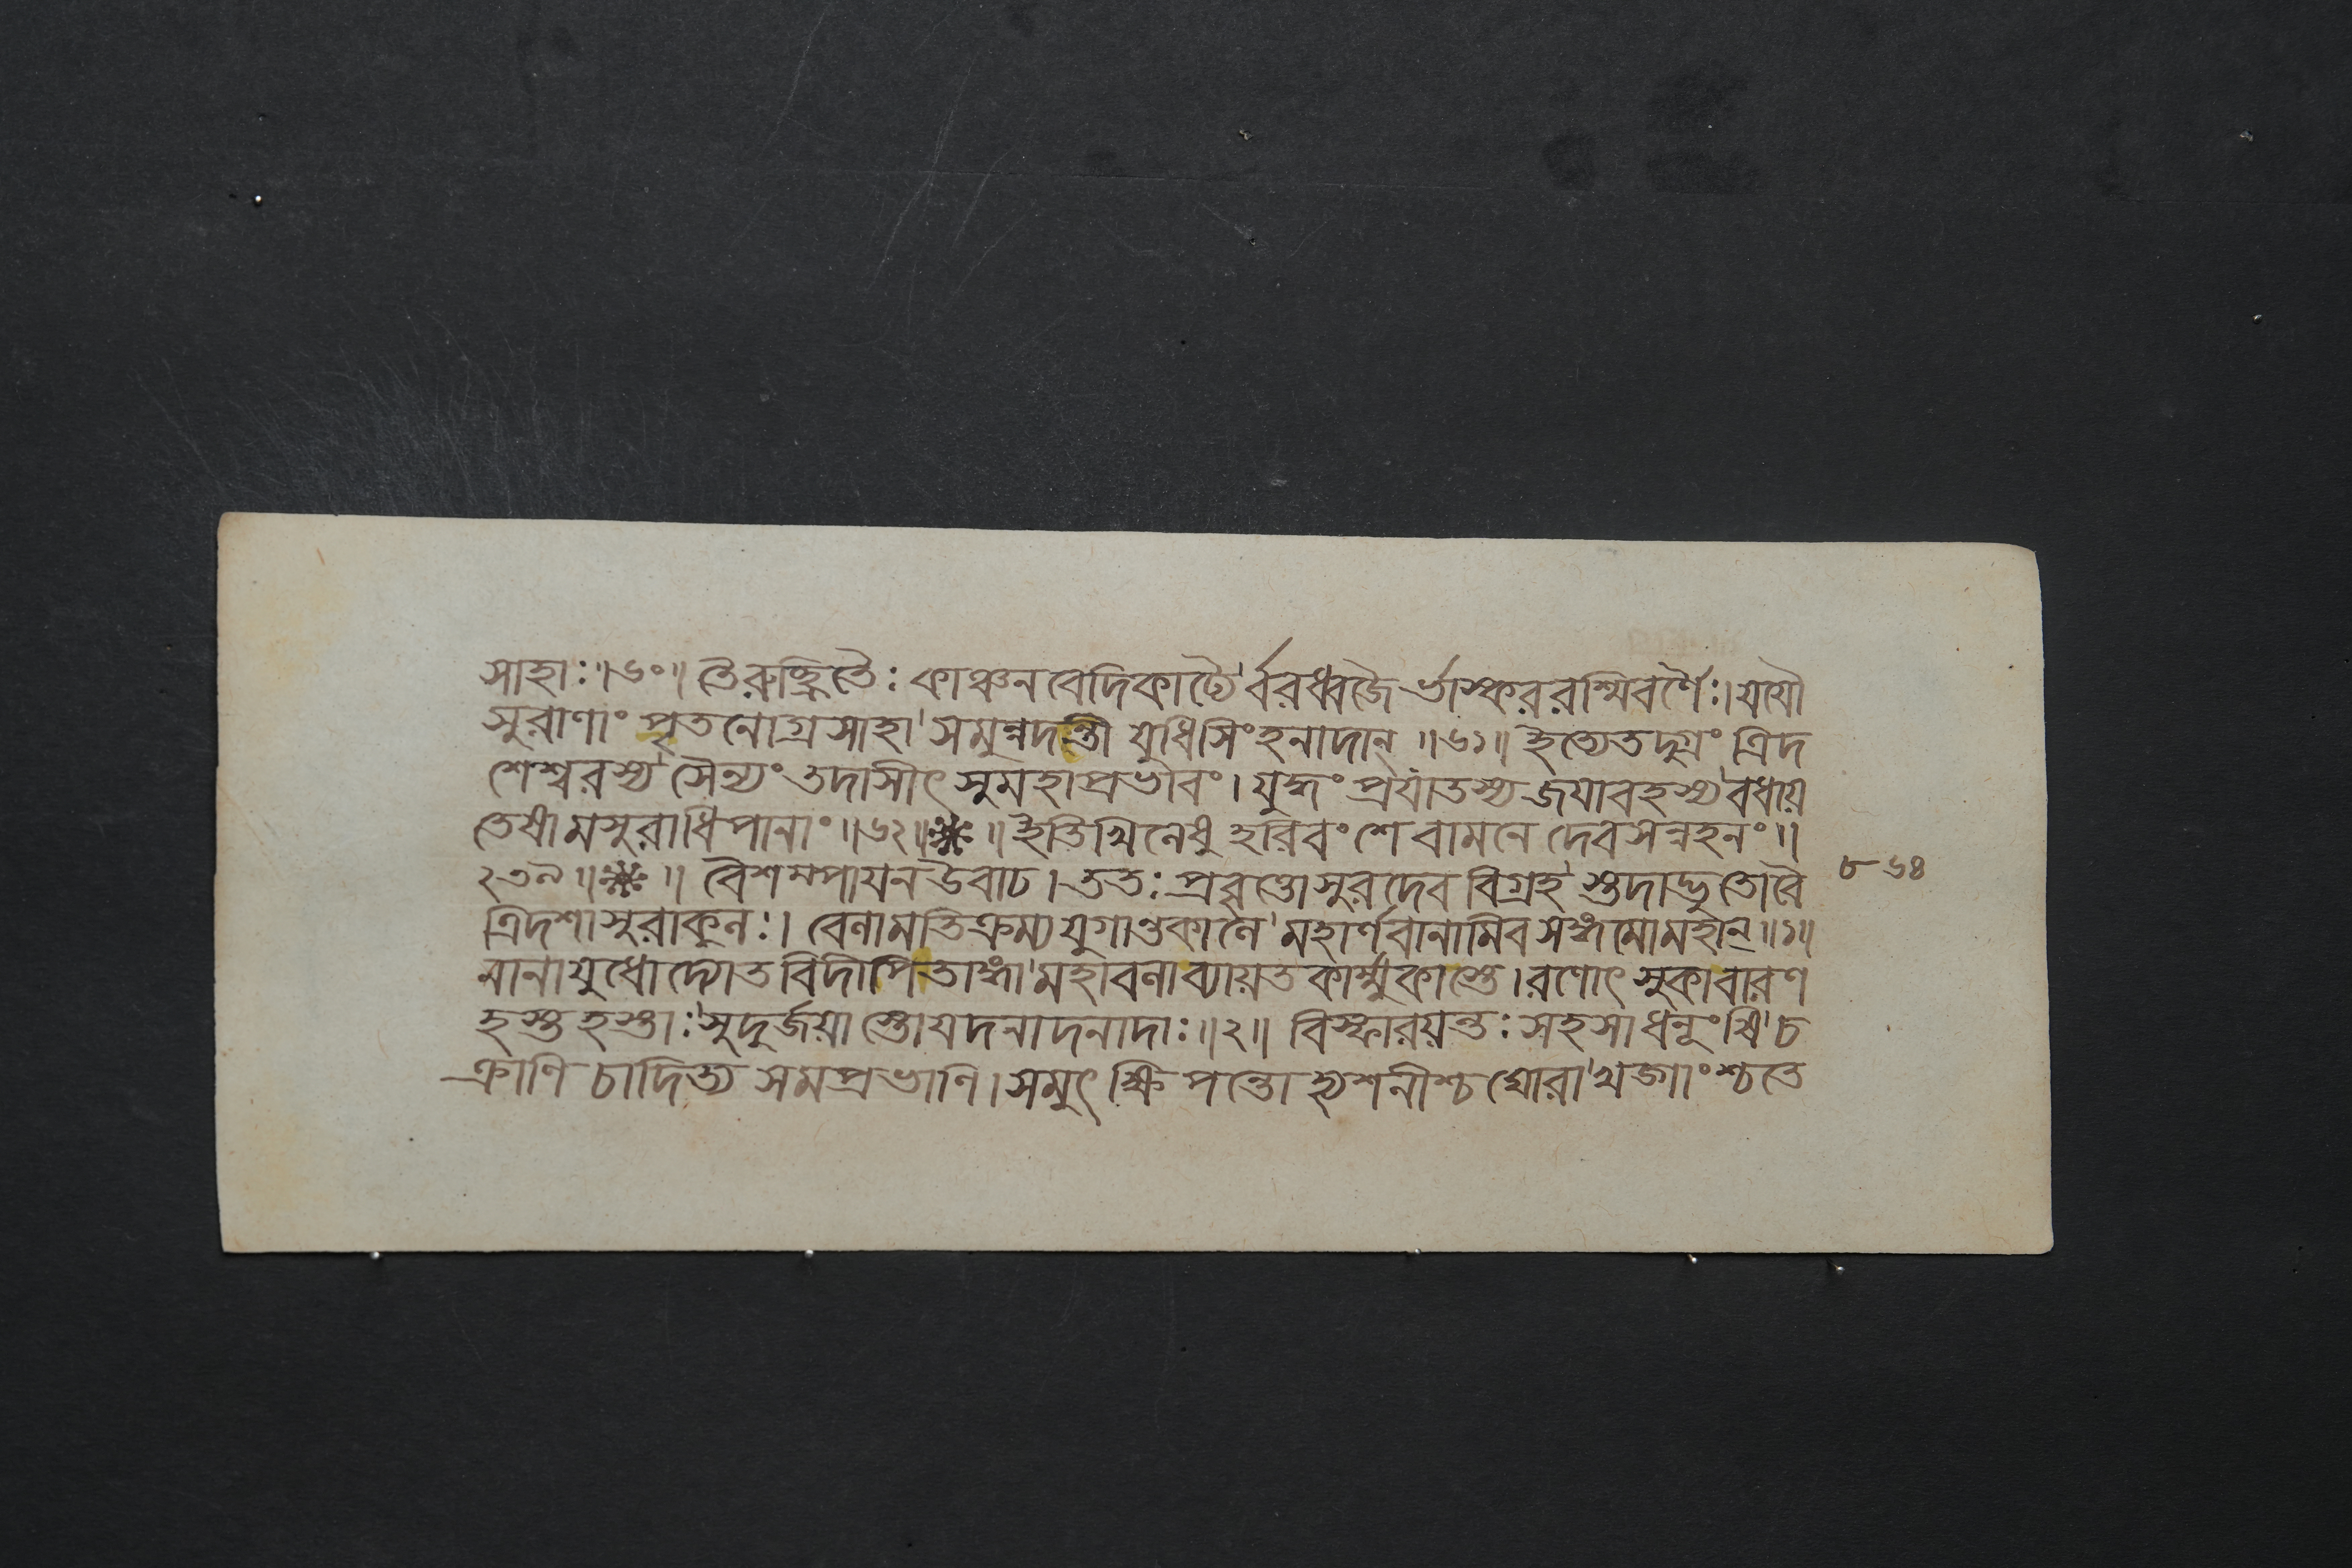 সাহাঃ॥৬০॥ তৈরুচ্ছ্রিতৈঃ কাঞ্চনবেদিকাঢ্যৈ র্বরধ্বজৈ র্ভাস্কররশ্মিবর্ণৈঃ। যযৌ
সুরাণাং পৃতনোগ্রসাহা সমুন্নদন্তী যুধি সিংহনাদান্ ॥৬১॥ ইত্যেতদুগ্রং ত্রিদ
শেশ্বরস্য সৈন্যং তদাসীৎ সুমহাপ্রভাবং। যুদ্ধং প্রযাতস্য জয়াবহস্য বধায়
তেষামসুরাধিপানাং ॥৬২॥❋॥ ইতি খিলেষু হরিবংশে বামনে দেবসন্নহনং॥
২৩৯॥❋॥ বৈশম্পায়ন উবাচ। ততঃ প্রবৃত্তোসুরদেববিগ্রহ স্তদাদ্ভুতো বৈ
ত্রিদশাসুরাকুলঃ। বেলামতিক্রম্য যুগান্তকালে মহার্ণবানামিব সঙ্গমো মহান্॥১॥
নানায়ুধোদ্যোতবিদীপিতাঙ্গা মহাবলা ব্যায়তকার্ম্মুকাস্তে। রণোৎসুকা বারণ
হস্তহস্তাঃ সুদুর্জয়া স্তোয়দনাদনাদাঃ॥২॥ বিস্ফারয়ন্তঃ সহসা ধনূংষি চ
ক্রাণি চাদিত্যসমপ্রভাণি। সমুৎক্ষিপন্তো হ্যশনীশ্চ ঘোরা খড্গাংশ্চ তে
৮৬৪